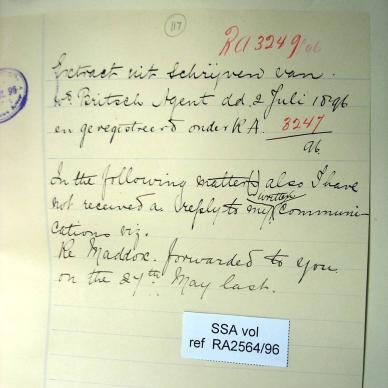 117
RA3249/96
Extract uit schrijven van
H.E. Britsch Agent dd. 2 Juli 1896
en geregistreerd onder R A. 3247
96
In the following matter(s) also I have
written
not received a reply to my communi-
cations viz.
Re Maddox. forwarded to you
on the 27th May last.
SSA vol
ref RA2564/96